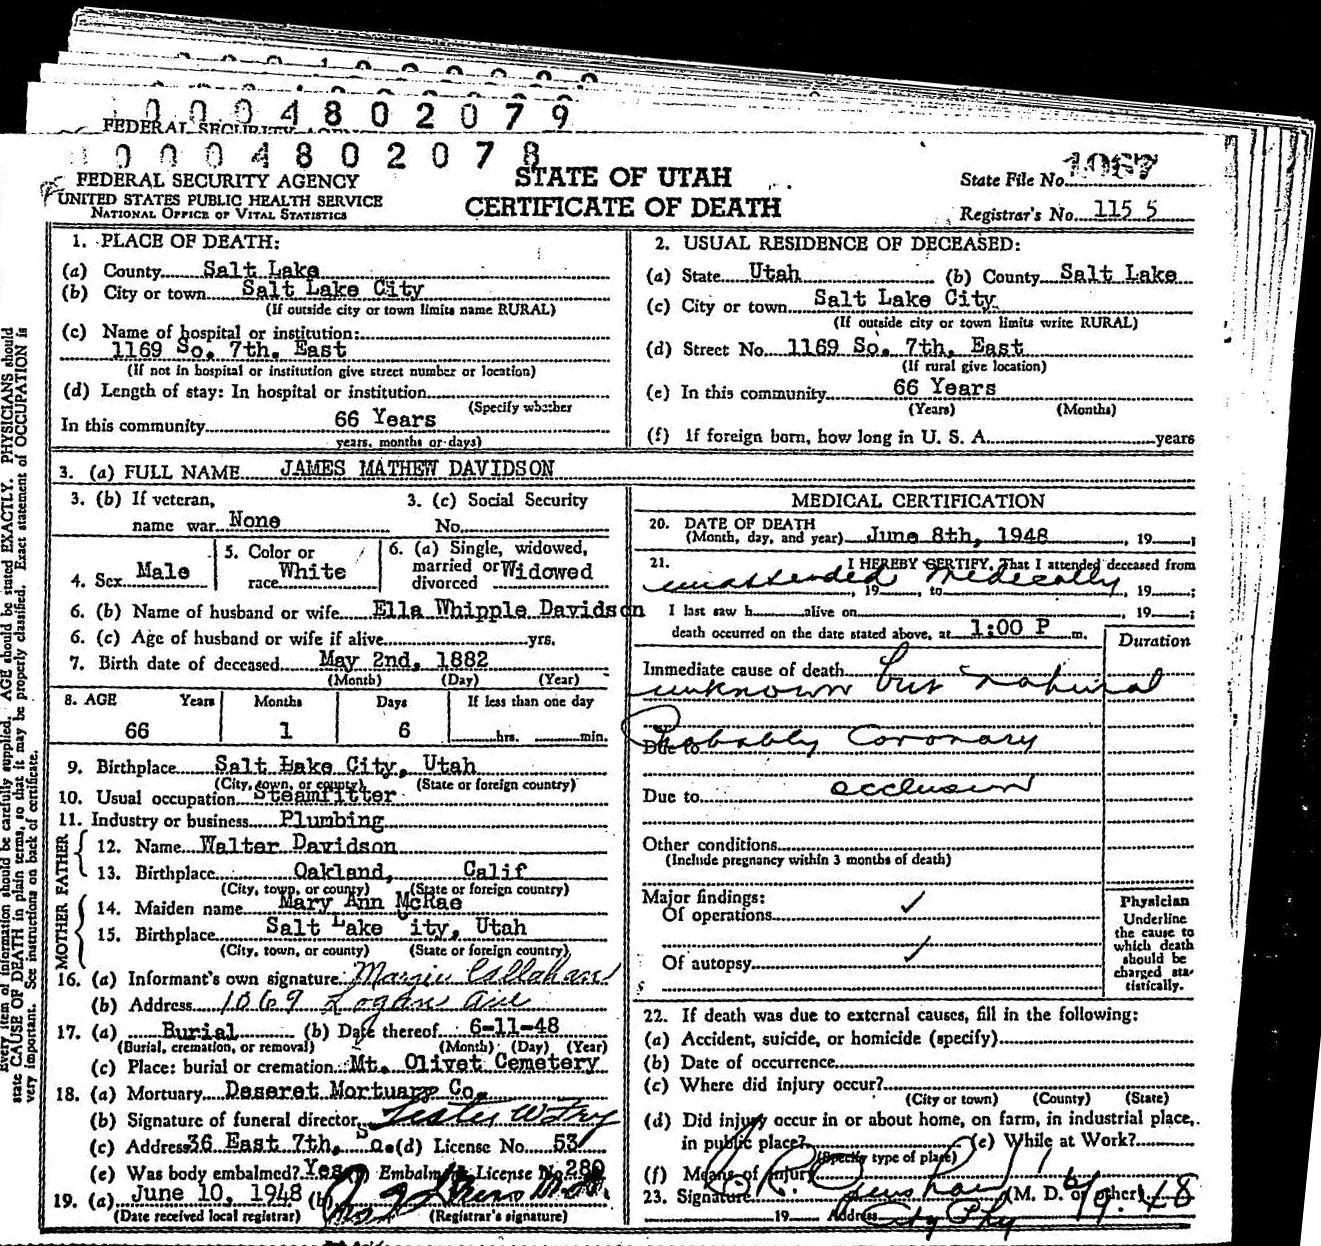 0 0 0 4 8 0 2 0 7 9
FEDERAL SECURITY AGENCY
0 0 0 4 8 0 2 0 7 8
FEDERAL SECURITY AGENCY
UNITED STATES PUBLIC HEALTH SERVICE
NATIONAL OFFICE OF VITAL STATISTICS
STATE OF UTAH
CERTIFICATE OF DEATH
State File No. 1067
Registrar's No. 115 5
1. PLACE OF DEATH:
(a) County Salt Lake
(b) City or town Salt Lake City
(If outside city or town limits name RURAL)
(c) Name of hospital or institution:
1169 So. 7th. East
(If not in hospital or institution give street number or location)
(d) Length of stay: In hospital or institution
(Specify whether
In this community 66 Years
years, months or days)
2. USUAL RESIDENCE OF DECEASED:
(a) State Utah (b) County Salt Lake
(c) City or town Salt Lake City
(If outside city or town limits write RURAL)
(d) Street No. 1169 So. 7th, East
(If rural give location)
(e) In this community 66 Years
(Years) (Months)
(f) If foreign born, how long in U. S. A. years
3. (a) FULL NAME JAMES MATHEW DAVIDSON
3. (b) If veteran,
name war None
3. (c) Social Security
No.
4. Sex Male
5. Color or
race White
6. (a) Single, widowed,
married or
divorced Widowed
6. (b) Name of husband or wife Ella Whipple Davidson
6. (c) Age of husband or wife if alive yrs.
7. Birth date of deceased May 2nd, 1882
(Month) (Day) (Year)
8. AGE Years Months Days If less than one day
66 1 6 hrs. min.
9. Birthplace Salt Lake City, Utah
(City, town, or county) (State or foreign country)
10. Usual occupation Steamfitter
11. Industry or business Plumbing
FATHER
12. Name Walter Davidson
13. Birthplace Oakland, Calif
(City, town, or county) (State or foreign country)
MOTHER
14. Maiden name Mary Ann McRae
15. Birthplace Salt Lake ity, Utah
(City, town, or county) (State or foreign country)
16. (a) Informant's own signature Margie Callahan
(b) Address 1069 Logan Ave
17. (a) Burial (b) Date thereof 6-11-48
(Burial, cremation, or removal) (Month) (Day) (Year)
(c) Place: burial or cremation Mt. Olivet Cemetery
18. (a) Mortuary Deseret Mortuary Co.
(b) Signature of funeral director
(c) Address 36 East 7th, So. (d) License No. 53
(e) Was body embalmed? Yes Embalmer License No. 280
19. (a) June 10, 1948 (b)
(Date received local registrar) (Registrar's signature)
MEDICAL CERTIFICATION
20. DATE OF DEATH
(Month, day, and year) June 8th, 1948, 19 ;
21. I HEREBY CERTIFY, That I attended deceased from
unattended Medically
, 19 , to , 19 ;
I last saw h alive on , 19 ;
death occurred on the date stated above, at 1:00 P m.
Duration
Immediate cause of death
unknown but natural
Probably Coronary
Due to
Due to occlusion
Other conditions
(Include pregnancy within 3 months of death)
Major findings:
Of operations ✓
Of autopsy ✓
Physician
Underline
the cause to
which death
should be
charged sta-
tistically.
22. If death was due to external causes, fill in the following:
(a) Accident, suicide, or homicide (specify)
(b) Date of occurrence
(c) Where did injury occur?
(City or town) (County) (State)
(d) Did injury occur in or about home, on farm, in industrial place,
in public place? (e) While at Work?
(Specify type of place)
(f) Means of injury
23. Signature (M. D. or other) 6/9.48
19 Address City Phy
Every item of information should be carefully supplied. AGE should be stated EXACTLY. PHYSICIANS should
state CAUSE OF DEATH in plain terms, so that it may be properly classified. Exact statement of OCCUPATION is
very important. See instructions on back of certificate.